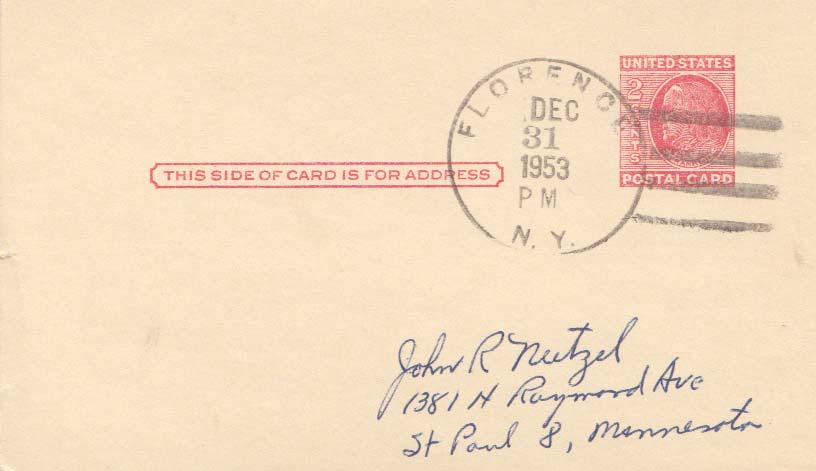 UNITED STATES
2 CENTS
FRANKLIN
POSTAL CARD
FLORENCE
DEC
31
1953
PM
N. Y.
THIS SIDE OF CARD IS FOR ADDRESS
John R Neetzel
1381 N Raymond Ave
St Paul 8, Minnesota